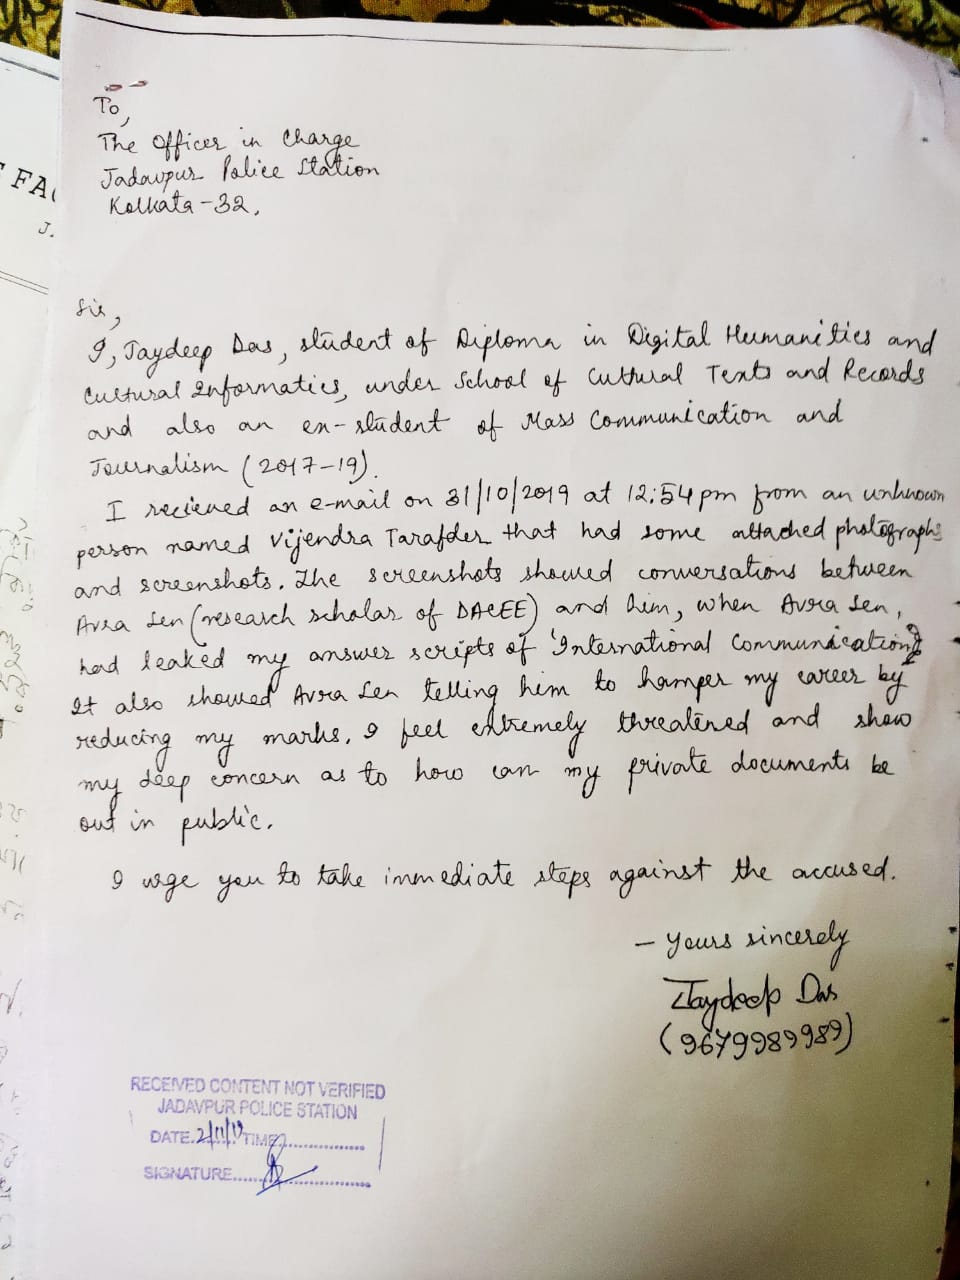 To,
The Officer in Charge
Jadavpur Police Station
Kolkata-32,
Sir,
I, Jaydeep Das, student of Diploma in Digital Humanities and
Cultural Informatics, under School of Cultural Texts and Records
and also an ex-student of Mass Communication and
Journalism (2017-19).
I recieved an e-mail on 31/10/2019 at 12:54pm from an unknown
person named Vijendra Tarafder that had some attached photographs
and screenshots. The screenshots showed conversations between
Avra Sen (research scholar of DACEE) and him, when Avra Sen,
had leaked my answer scripts of 'International Communication'
It also showed Avra Sen telling him to hamper my career by
reducing my marks. I feel extremely threatened and show
my deep concern as to how can my private documents be
out in public.
I urge you to take immediate steps against the accused.
- Yours sincerely
Jaydeep Das
(9679989989)
RECEIVED CONTENT NOT VERIFIED
JADAVPUR POLICE STATION
DATE. 2/11/19 TIME
SIGNATURE
FA
J.